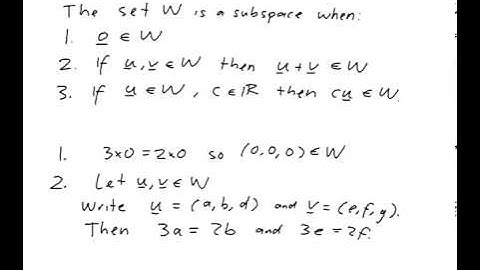 The set W is a subspace when:
1. 0 ∈ W
2. If u, v ∈ W then u + v ∈ W
3. If u ∈ W, c ∈ ℝ then cu ∈ W.
1. 3×0 = 2×0 so (0,0,0) ∈ W
2. Let u, v ∈ W
Write u = (a, b, d) and v = (e, f, g).
Then 3a = 2b and 3e = 2f.